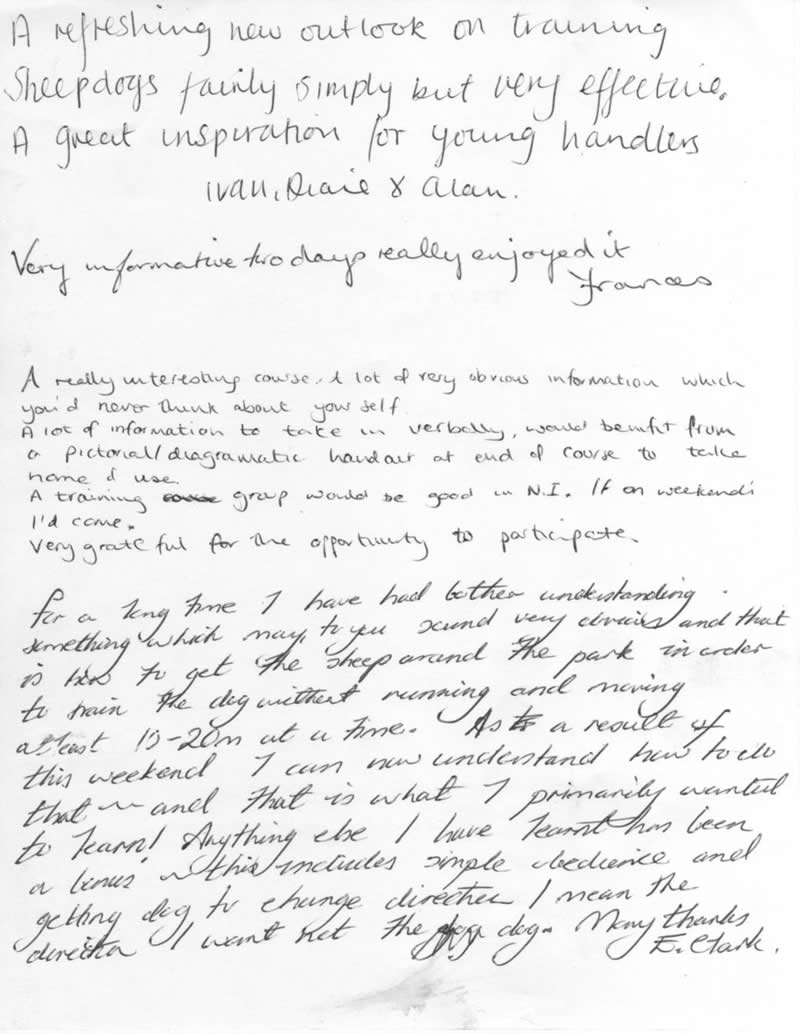 A refreshing new outlook on training
Sheepdogs fairly simply but very effective.
A great inspiration for young handlers
Ivan, & Alan.
Very informative two days really enjoyed it
Frances
A really interesting course. A lot of very obvious information which
you'd never think about your self.
A lot of information to take in verbally, would benifit from
a pictorial/diagramatic handout at end of course to take
home & use.
A training course group would be good in N.I. If on weekend's
I'd come.
Very grateful for the opportunity to participate.
For a long time I have had bother understanding
something which may, to you sound very obvious and that
is how to get the sheep around the park in order
to train the dog without running and moving
atleast 15-20m at a time. As a result of
this weekend I can now understand how to do
that ~ and that is what I primarily wanted
to learn! Anything else I have learnt has been
a bonus ~ this includes simple obedience and
getting dog to change direction I mean the
direction I want not the dog. Many thanks
E. Clark.